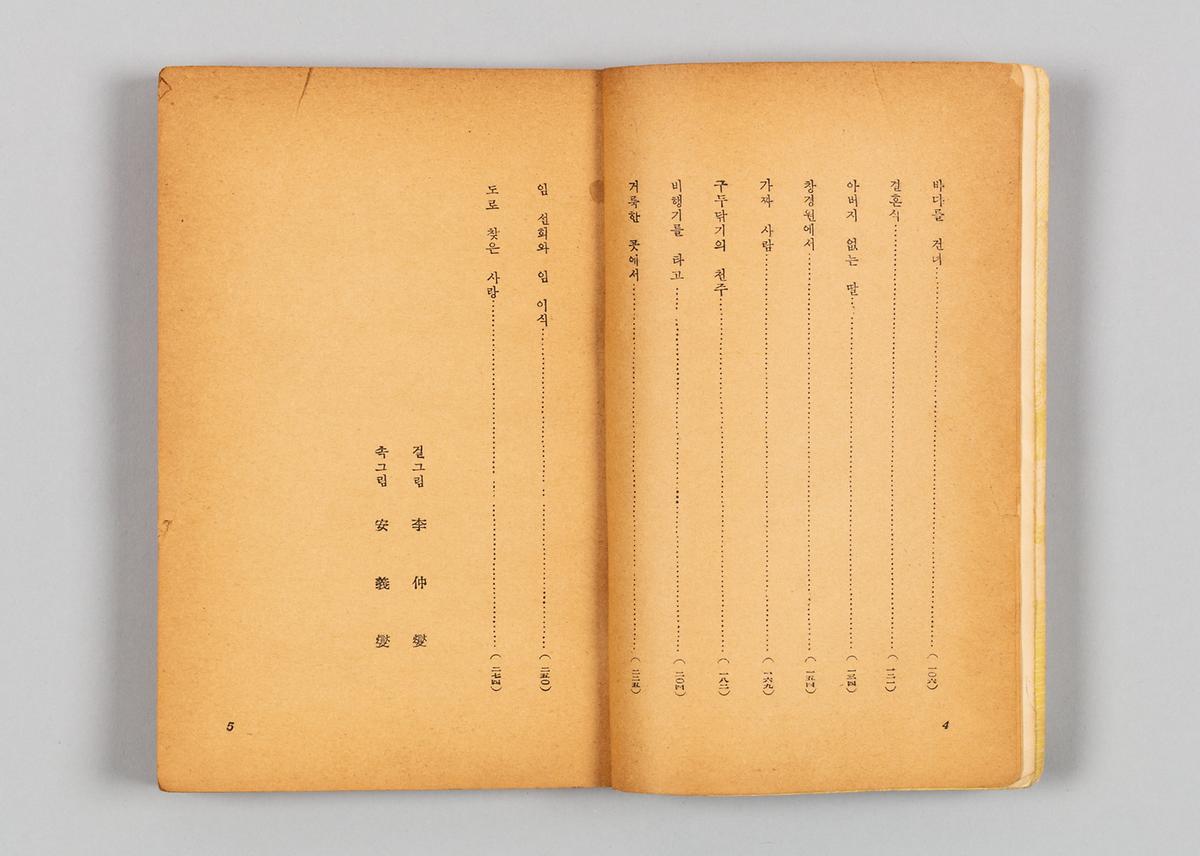 바다를 건너……(一〇六)
결혼식……(一二一)
아버지 없는 딸……(一三四)
창경원에서……(一五四)
가짜 사람……(一六九)
구두닦기의 천주……(一八二)
비행기를 타고……(二〇四)
거룩한 곳에서……(二二五)
4
임 선희와 임 이식……(二五〇)
도로 찾은 사랑……(二七四)
겉그림 李 仲 燮
속그림 安 義 燮
5